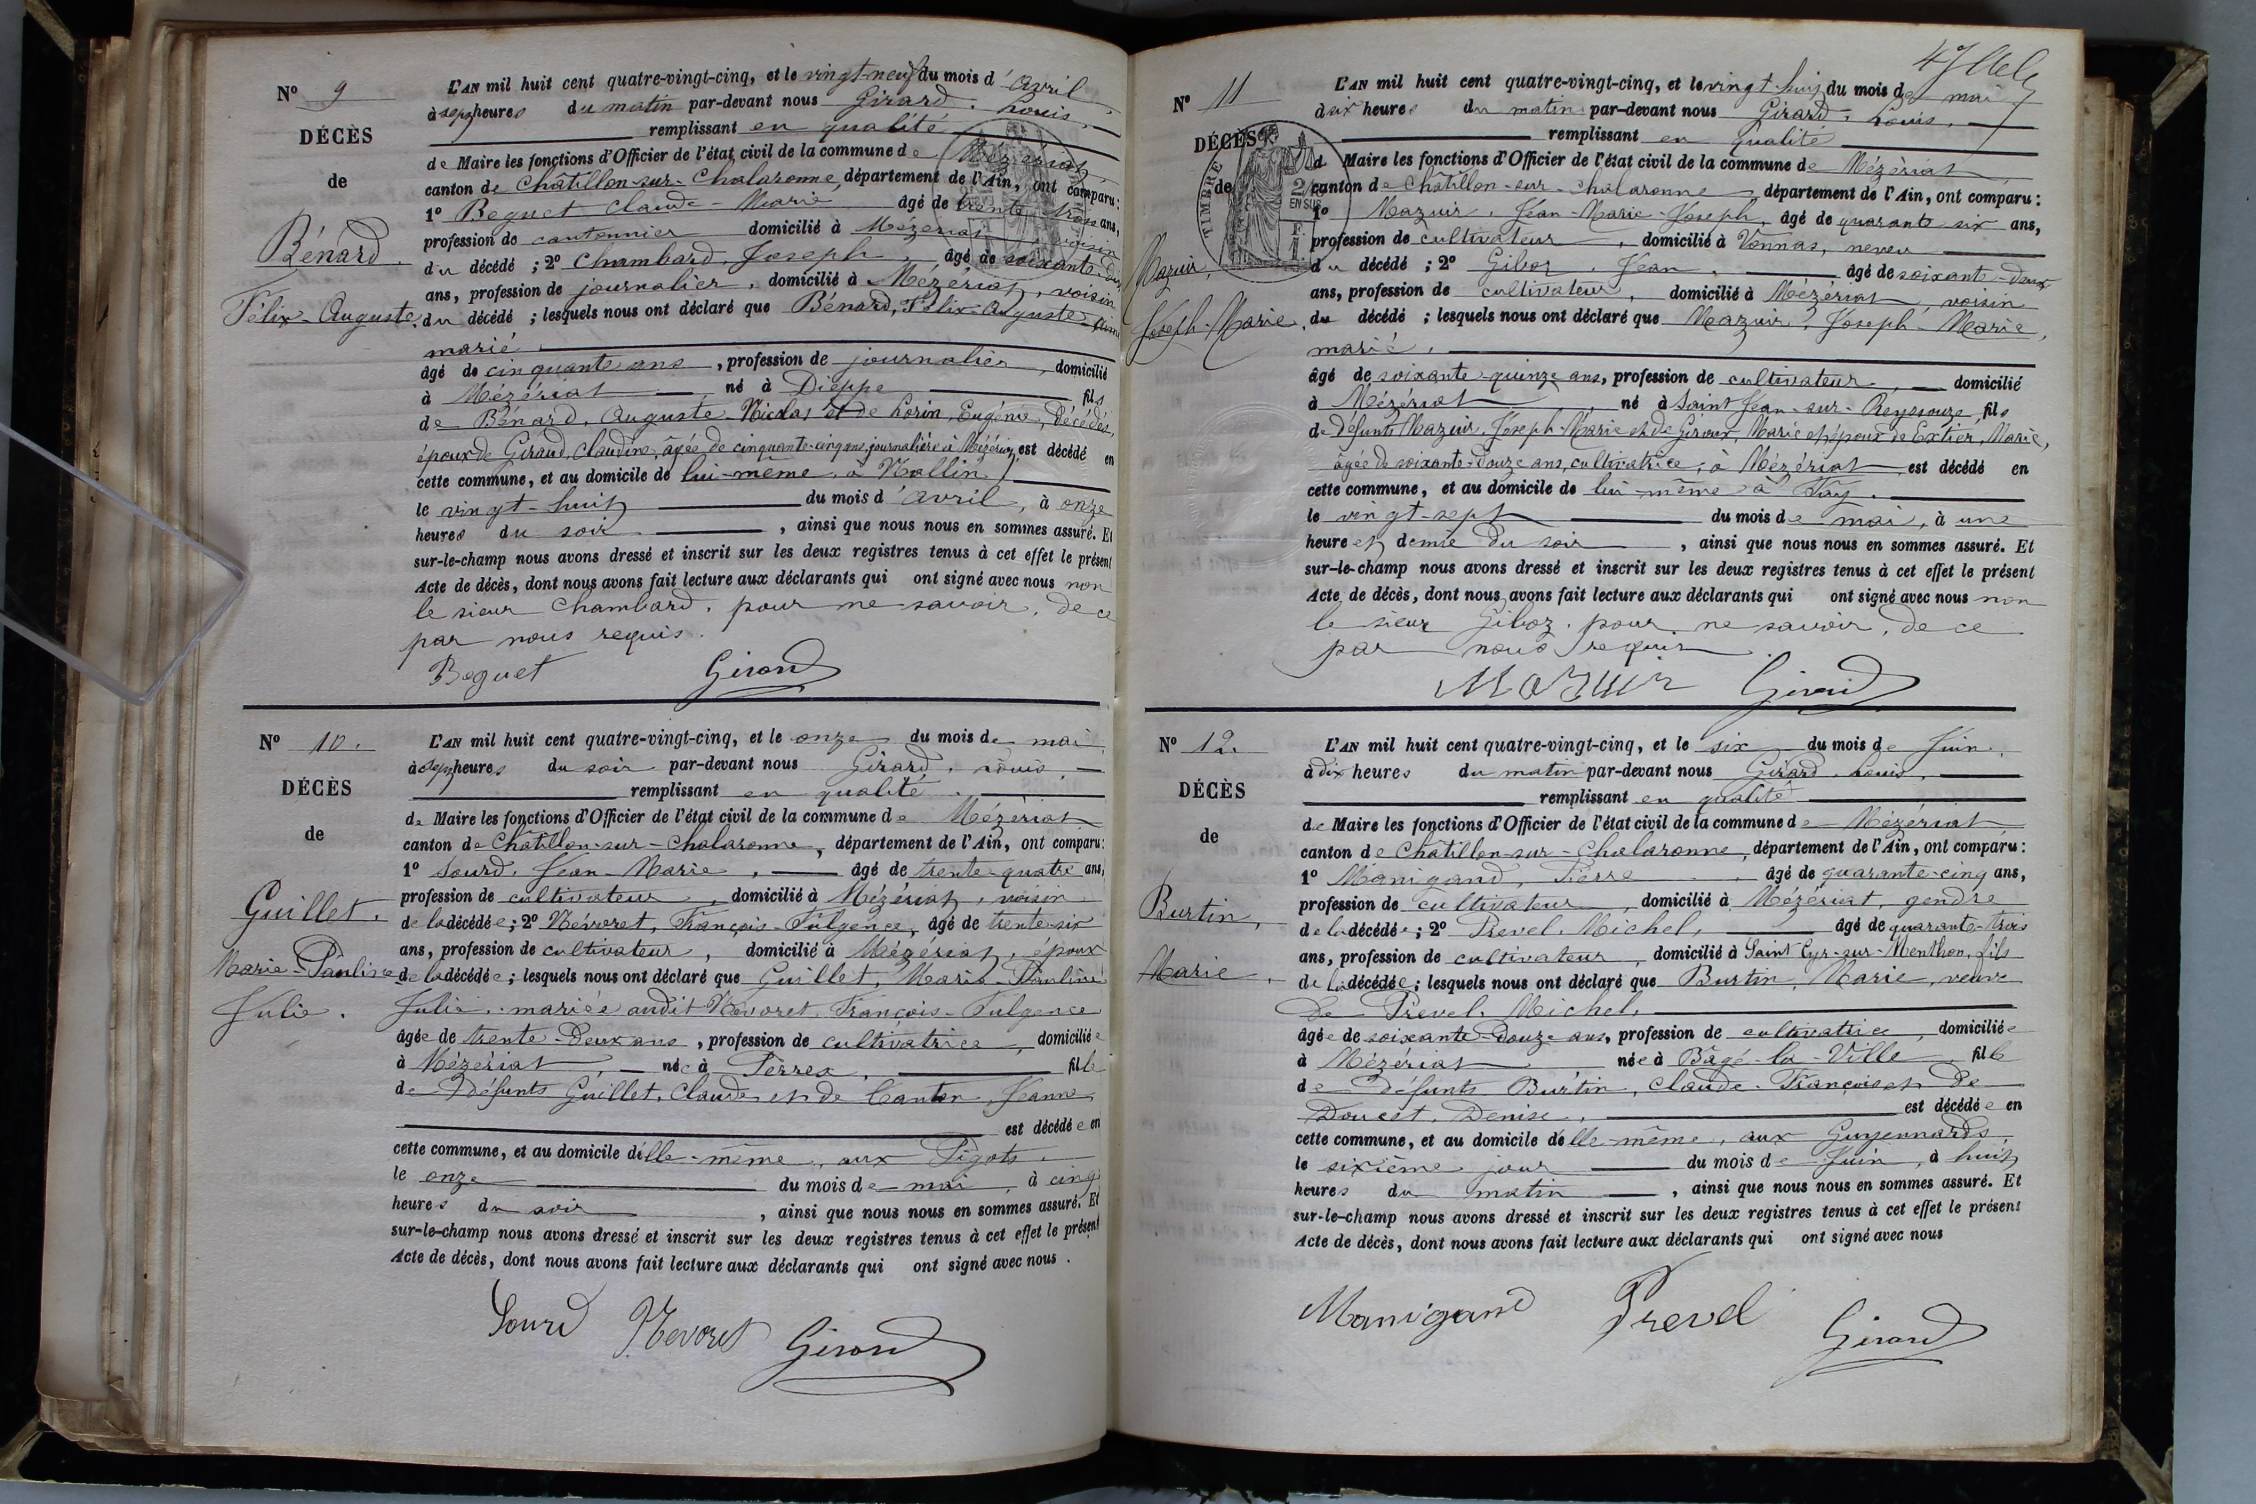 Nº 9
DÉCÈS
de
Bénard
Félix-Auguste.
L'AN mil huit cent quatre-vingt-cinq, et le vingt-neuf du mois d'avril,
à sept heures du matin par-devant nous Girard, Louis,
remplissant en qualité
de Maire les fonctions d'Officier de l'état civil de la commune de Mézériat,
canton de Châtillon-sur-Chalaronne, département de l'Ain, ont comparu :
1º Beguet Claude-Marie âgé de trente trois ans,
profession de cantonnier domicilié à Mézériat, voisin
du décédé ; 2º Chambard, Joseph, âgé de soixante-deux
ans, profession de journalier, domicilié à Mézériat, voisin
du décédé ; lesquels nous ont déclaré que Bénard, Félix-Auguste-
marié
âgé de cinquante ans, profession de journalier, domicilié
à Mézériat né à Dieppe fils
de Bénard, Auguste Nicolas et de Lorin, Eugénie, décédés,
époux de Giraud, Claudine, âgée de cinquante-cinq ans, journalière à Mézériat, est décédé en
cette commune, et au domicile de lui-même, à Wallin
le vingt-huit du mois d'avril, à onze
heures du soir, ainsi que nous nous en sommes assuré. Et
sur-le-champ nous avons dressé et inscrit sur les deux registres tenus à cet effet le présent
Acte de décès, dont nous avons fait lecture aux déclarants qui ont signé avec nous non
le sieur Chambard, pour ne savoir, de ce
par nous requis.
Beguet Girard
Nº 10.
DÉCÈS
de
Guillet,
Marie-Pauline
Julie.
L'AN mil huit cent quatre-vingt-cinq, et le onze du mois de mai,
à sept heures du soir par-devant nous Girard, Louis,
remplissant en qualité
de Maire les fonctions d'Officier de l'état civil de la commune de Mézériat
canton de Châtillon-sur-Chalaronne, département de l'Ain, ont comparu :
1º Sourd, Jean-Marie, âgé de trente-quatre ans,
profession de cultivateur, domicilié à Mézériat, voisin
de la décédée ; 2º Nevoret, François-Fulgence, âgé de trente-six
ans, profession de cultivateur, domicilié à Mézériat, époux
de la décédée ; lesquels nous ont déclaré que Guillet, Marie-Pauline
Julie, mariée audit Nevoret, François-Fulgence
âgée de trente-deux ans, profession de cultivatrice, domiciliée
à Mézériat, née à Perrex, fille
de défunts Guillet, Claude et de Canton, Jeanne
est décédée en
cette commune, et au domicile d'elle-même, aux Pigots.
le onze du mois de mai, à cinq
heures du soir, ainsi que nous nous en sommes assuré. Et
sur-le-champ nous avons dressé et inscrit sur les deux registres tenus à cet effet le présent
Acte de décès, dont nous avons fait lecture aux déclarants qui ont signé avec nous.
Sourd Nevoret Girard
Nº 11
DÉCÈS
de
Mazuir,
Joseph-Marie.
TIMBRE
2/10
EN SUS
L'AN mil huit cent quatre-vingt-cinq, et le vingt-huit du mois de mai
à six heures du matin par-devant nous Girard, Louis,
remplissant en qualité
de Maire les fonctions d'Officier de l'état civil de la commune de Mézériat
canton de Châtillon-sur-Chalaronne, département de l'Ain, ont comparu :
1º Mazuir, Jean-Marie-Joseph, âgé de quarante six ans,
profession de cultivateur, domicilié à Vonnas, neveu
du décédé ; 2º Giboz, Jean, âgé de soixante-deux
ans, profession de cultivateur, domicilié à Mézériat, voisin
du décédé ; lesquels nous ont déclaré que Mazuir, Joseph-Marie,
marié,
âgé de soixante-quinze ans, profession de cultivateur, domicilié
à Mézériat né à Saint Jean-sur-Reyssouze, fils
de défunts Mazuir, Joseph-Marie et de Giroux, Marie et époux de Extier, Marie,
âgée de soixante-douze ans, cultivatrice, à Mézériat est décédé en
cette commune, et au domicile de lui-même à Fay.
le vingt-sept du mois de mai, à une
heure et demie du soir, ainsi que nous nous en sommes assuré. Et
sur-le-champ nous avons dressé et inscrit sur les deux registres tenus à cet effet le présent
Acte de décès, dont nous avons fait lecture aux déclarants qui ont signé avec nous non
le sieur Giboz, pour ne savoir, de ce
par nous requis
Mazuir Girard
Nº 12.
DÉCÈS
de
Burtin,
Marie.
L'AN mil huit cent quatre-vingt-cinq, et le six du mois de Juin,
à dix heures du matin par-devant nous Girard, Louis,
remplissant en qualité
de Maire les fonctions d'Officier de l'état civil de la commune de Mézériat
canton de Châtillon-sur-Chalaronne, département de l'Ain, ont comparu :
1º Manigand, Pierre âgé de quarante-cinq ans,
profession de cultivateur, domicilié à Mézériat, gendre
de la décédée ; 2º Prevel, Michel, âgé de quarante-trois
ans, profession de cultivateur, domicilié à Saint Cyr-sur-Menthon, fils
de la décédée ; lesquels nous ont déclaré que Burtin, Marie, veuve
de Prevel, Michel,
âgée de soixante-douze ans, profession de cultivatrice, domiciliée
à Mézériat née à Bâgé-la-Ville fille
de défunts Burtin, Claude-François et de
Doucet, Denise, est décédée en
cette commune, et au domicile d'elle-même, aux Guyennards,
le sixième jour du mois de Juin, à huit
heures du matin, ainsi que nous nous en sommes assuré. Et
sur-le-champ nous avons dressé et inscrit sur les deux registres tenus à cet effet le présent
Acte de décès, dont nous avons fait lecture aux déclarants qui ont signé avec nous
Manigand Prevel Girard